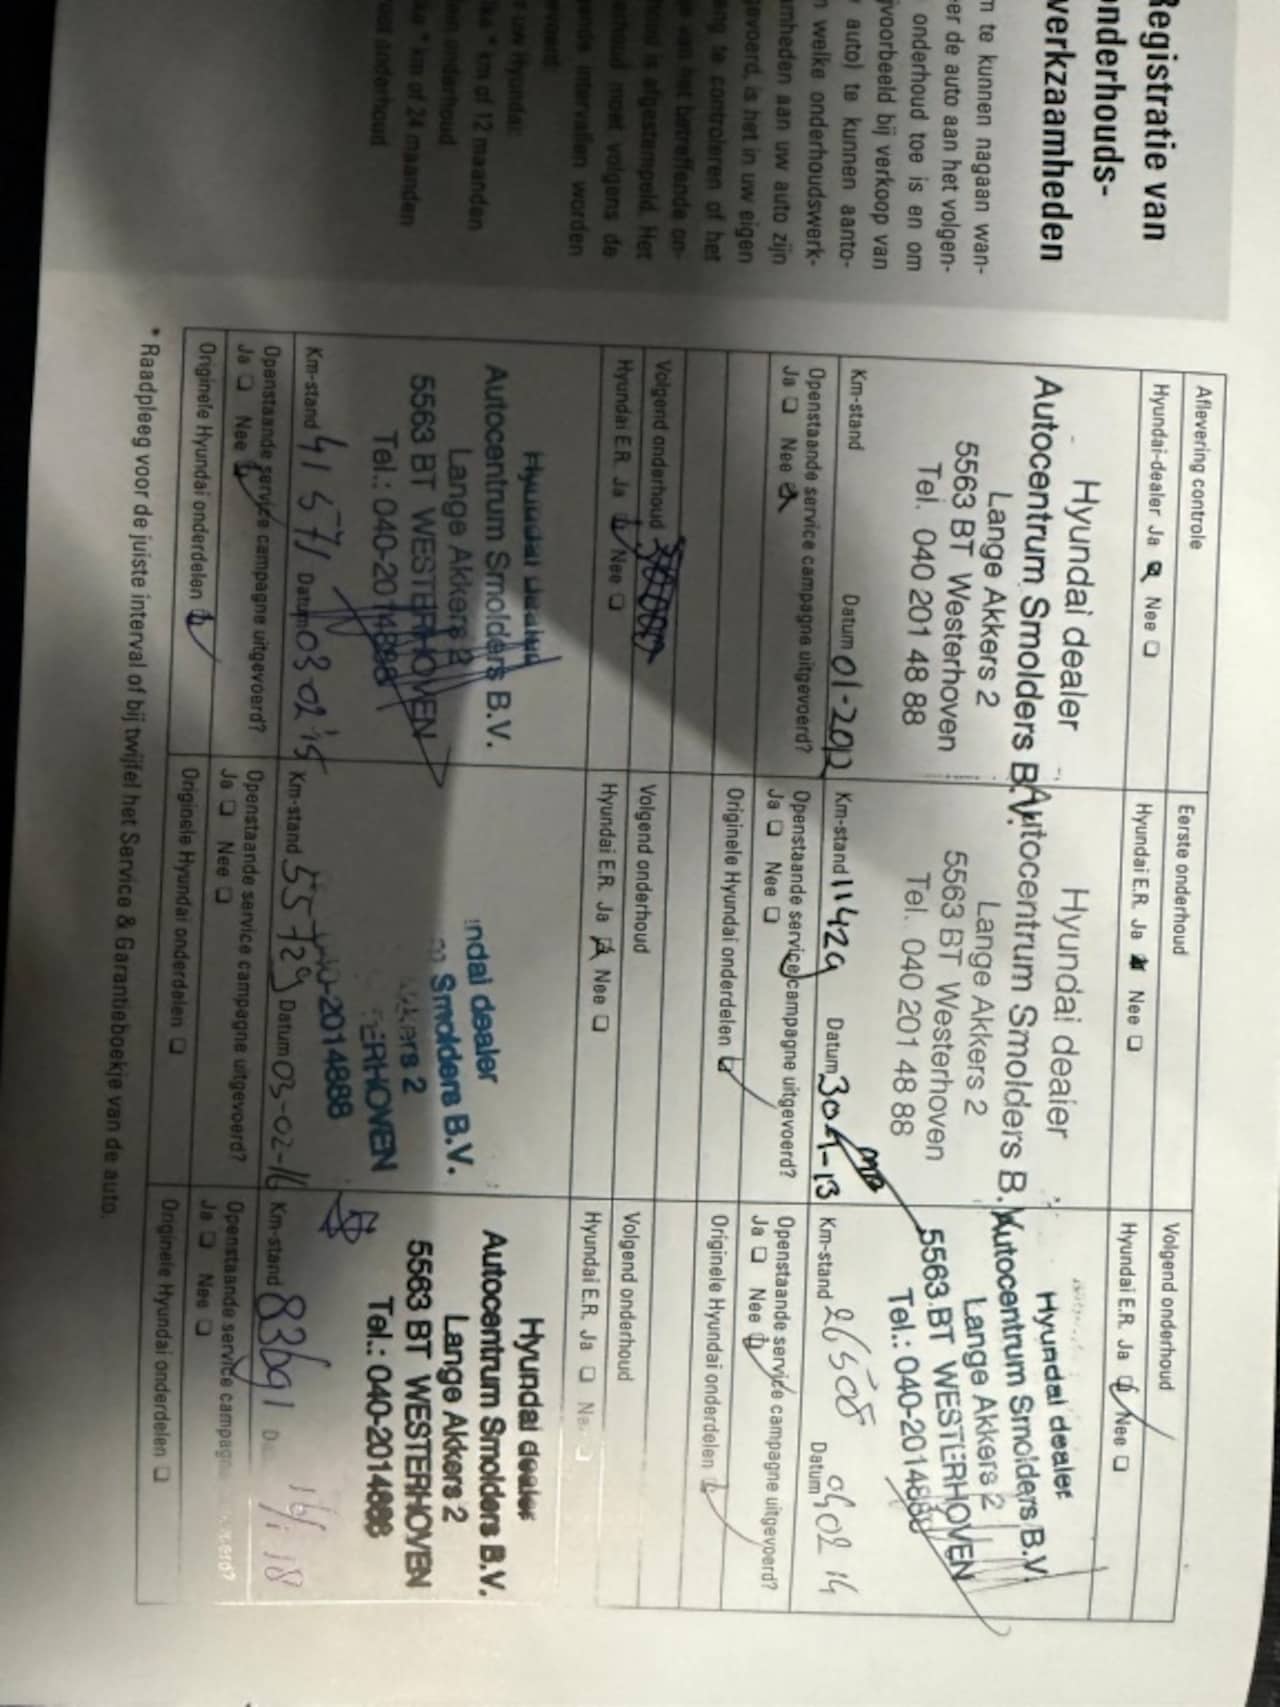 Registratie van
onderhouds-
werkzaamheden
m te kunnen nagaan wan-
er de auto aan het volgen-
onderhoud toe is en om
jvoorbeeld bij verkoop van
auto) te kunnen aanto-
n welke onderhoudswerk-
amheden aan uw auto zijn
gevoerd, is het in uw eigen
ang te controleren of het
je van het betreffende on-
houd is afgestempeld. Het
erhoud moet volgens de
gende intervallen worden
gevoerd:
r uw Hyundai:
lke * km of 12 maanden
een onderhoud
lke * km of 24 maanden
root onderhoud
Aflevering controle
Hyundai-dealer Ja ☒ Nee ❏
Hyundai dealer
Autocentrum Smolders B.V.
Lange Akkers 2
5563 BT Westerhoven
Tel. 040 201 48 88
Km-stand Datum 01-2012
Openstaande service campagne uitgevoerd?
Ja ❏ Nee ☒
Eerste onderhoud
Hyundai E.R. Ja ☒ Nee ❏
Hyundai dealer
Autocentrum Smolders B.V.
Lange Akkers 2
5563 BT Westerhoven
Tel. 040 201 48 88
Km-stand 11429 Datum
Openstaande service campagne uitgevoerd?
Ja ❏ Nee ❏
Originele Hyundai onderdelen ☑
Volgend onderhoud
Hyundai E.R. Ja ☑ Nee ❏
Hyundai dealer
Autocentrum Smolders B.V.
Lange Akkers 2
5563 BT WESTERHOVEN
Tel.: 040-2014888
Km-stand 26508 Datum 0402 14
Openstaande service campagne uitgevoerd?
Ja ❏ Nee ☑
Originele Hyundai onderdelen ☑
Volgend onderhoud
Hyundai E.R. Ja ☑ Nee ❏
Hyundai dealer
Autocentrum Smolders B.V.
Lange Akkers 2
5563 BT WESTERHOVEN
Tel.: 040-2014888
Km-stand 41571 Datum 03 02 '15
Openstaande service campagne uitgevoerd?
Ja ❏ Nee ☑
Originele Hyundai onderdelen ☑
Volgend onderhoud
Hyundai E.R. Ja ☒ Nee ❏
undai dealer
Smolders B.V.
kkers 2
ERHOVEN
-2014888
Km-stand 55729 Datum 03-02-16
Openstaande service campagne uitgevoerd?
Ja ❏ Nee ❏
Originele Hyundai onderdelen ❏
Volgend onderhoud
Hyundai E.R. Ja ❏ Ne
Hyundai dealer
Autocentrum Smolders B.V.
Lange Akkers 2
5563 BT WESTERHOVEN
Tel.: 040-2014888
Km-stand 83691
Openstaande service campagn erd?
Ja ❏ Nee ❏
Originele Hyundai onderdelen ❏
* Raadpleeg voor de juiste interval of bij twijfel het Service & Garantieboekje van de auto.